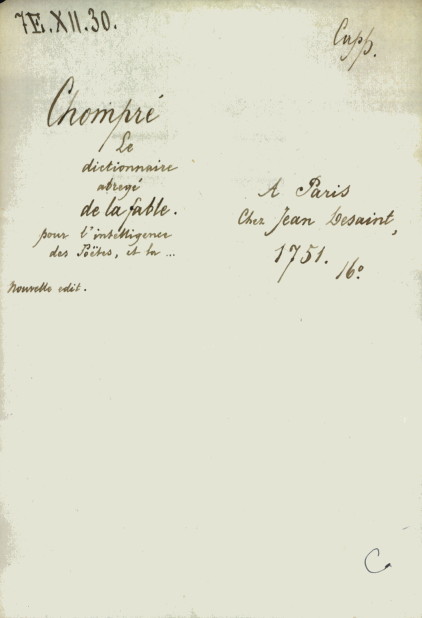 7E.XII.30.
Capp.
Chompré
Le
dictionnaire
abregé
de la fable.
pour l'intelligence
des Poëtes, et la ...
Nouvelle edit.
A Paris
Chez Jean Desaint,
1751.
16º.
C